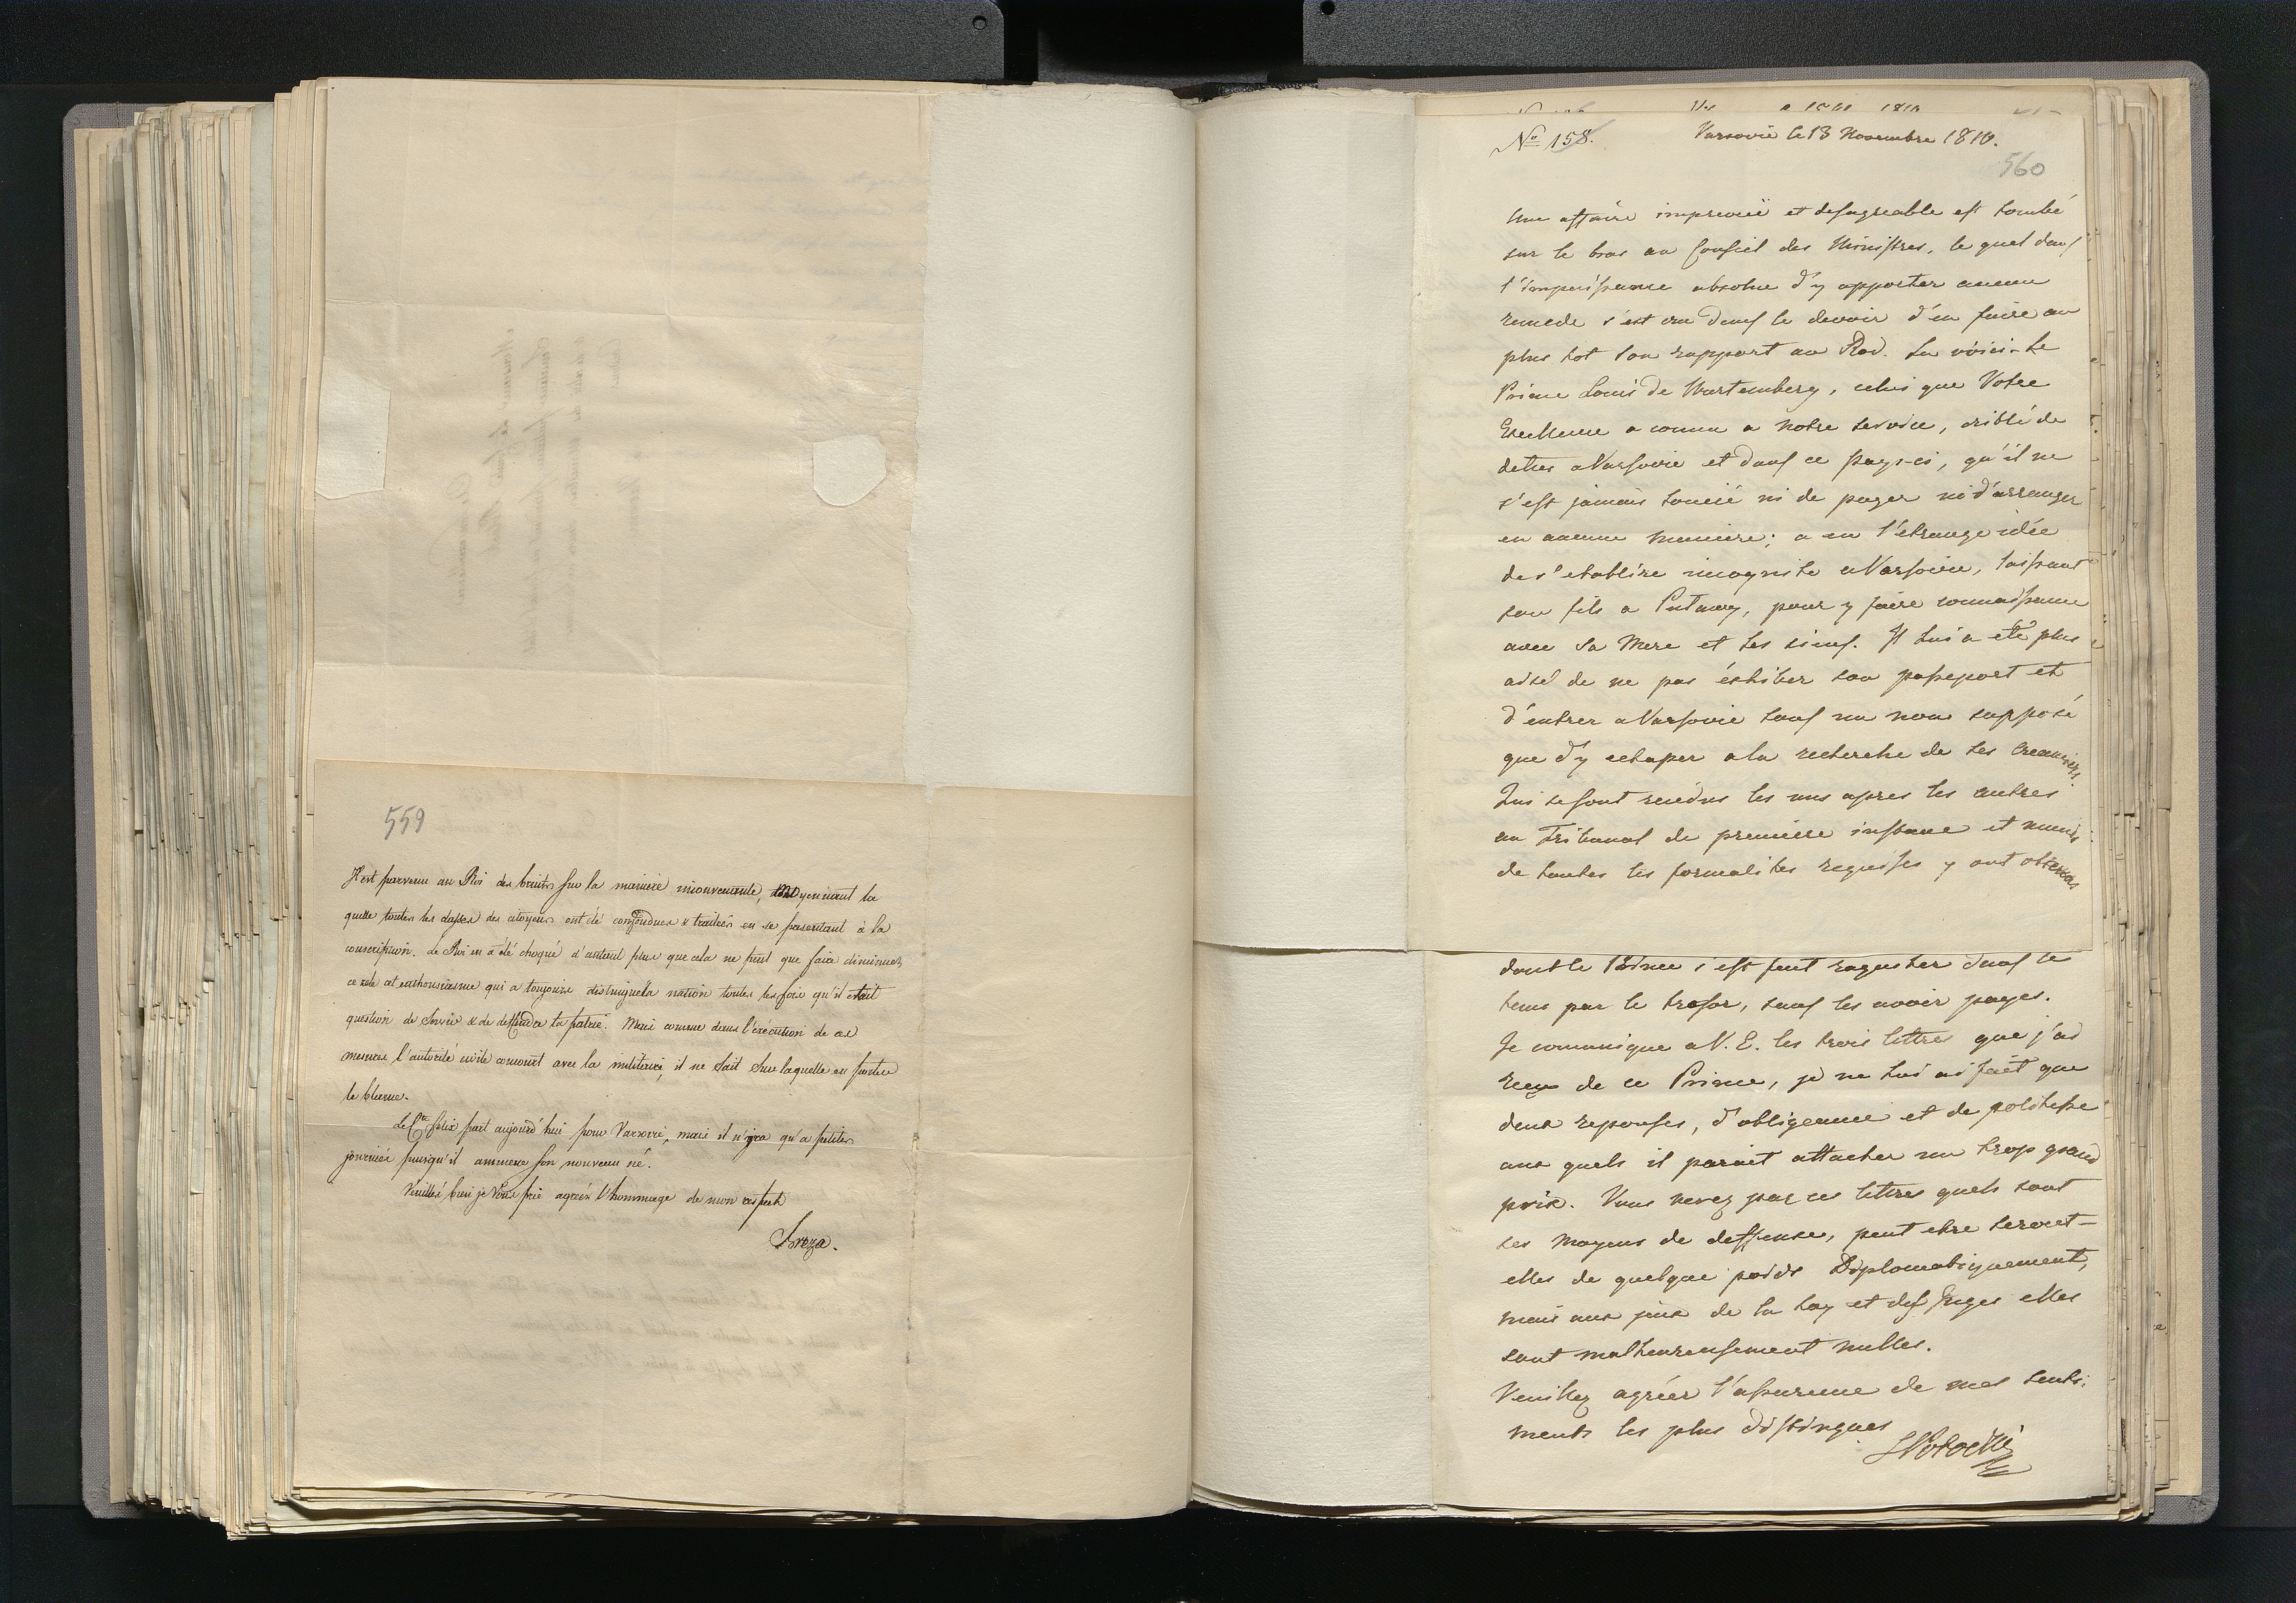 559
Il est parvenu au Roi des bruits sur la manière inconvenante, moyennant la
quelle toutes les classes des citoyens ont été confondues & traitées en se presentant à la
conscription. Le Roi en a été choqué d'autant plus que cela ne peut que faire diminuer
ce zele et enthousiasme qui a toujours distingué la nation toutes les fois qu'il etait
question de servir & de deffendre la patrie. Mais comme dans l'exécution de ces
mesures l'autorité civile concourt avec la militaire, il ne sait sur laquelle en porter
le blame.
Le Cte Félix part aujourd'hui pour Varsovie, mais il n'ira qu'a petites
journées puisqu'il ammene son nouveau né.
Veuillez bien je Vous prie agréer l'hommage de mon respect
Breza.
No 158.
Varsovie le 13 Novembre 1810.
560
Une affaire imprevuë et desagreable est tombé
sur le bras au Conseil des Ministres, le quel dans
l'impuissance absolue d'y apporter aucun
remede s'est vu dans le devoir d'en faire au
plus tot son rapport au Roi. La voici - Le
Prince Louis de Wurtemberg, celui que Votre
Excellence a connu a notre service, criblé de
dettes a Varsovie et dans ce pays-ci, qu'il ne
s'est jamais soucié ni de payer ni d'arranger
en aucune maniere; a eu l'etrange idée
de s'etablire incognito a Varsovie, laissant
son fils a Pulawy, pour y faire connaissance
avec sa Mere et les siens. Il lui a eté plus
aisé de ne pas éxhiber son passeport et
d'entrer a Varsovie sous un nom supposé
que d'y echaper a la recherche de ses Creanciers
Qui se sont rendus les uns apres les autres
au Tribunal de premiere instance et munis
de toutes les formalites requises y ont obtenus
dont le Prince s'est fait racheter dans le
tems par le tresor, sans les avoir payes.
Je comunique a V. E. les trois lettres que j'ai
reçu de ce Prince, je ne lui ai fait que
deux reponses, d'obligeance et de politesse
aux quels il parait attacher un trop grand
prix. Vous verez par ces lettres quels sont
ses moyens de deffense, peut etre seroit-
elles de quelque poids Diplomatiquement,
mais aux yeux de la loy et des Juges elles
sont malheureusement nulles.
Veuillez agréer l'assurence de mes senti-
ments les plus distingues
S Potocki